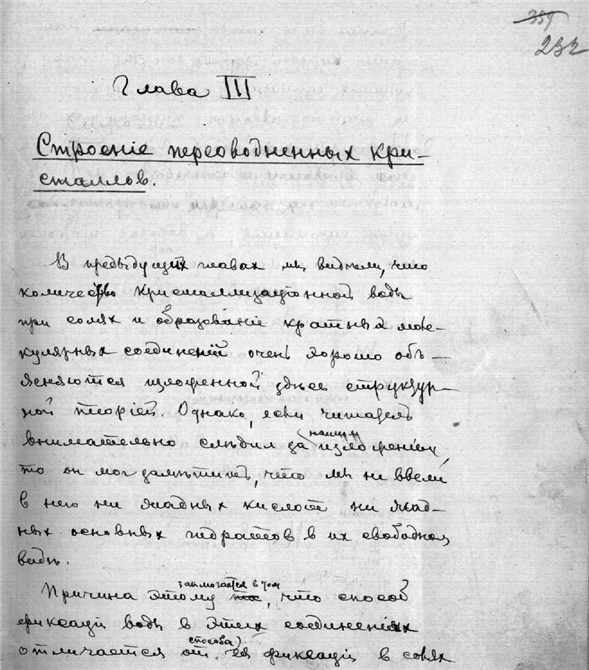 359
232
Глава III
Строеніе переоводненных кри-
сталлов.
В предыдущих главах мы видели, что
количество кристаллизаціонной воды
при солях и образованіе кратных моле-
кулярных соединеній очень хорошо объ-
ясняются изложенной здесь структур-
ной теоріей. Однако, если читатель
внимательно следил за нашим изложеніем,
то он мог заметить, что мы не ввели
в него ни жидных кислот ни жид-
ных основных гидратов в их свободном
виде.
Причина этому заключается в том, что способ
фиксаціи воды в этих соединеніях
отличается от способа ея фиксаціи в солях